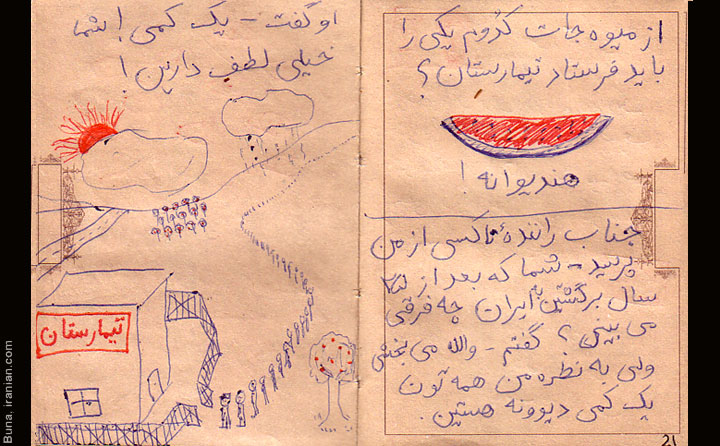 از میوه جات کدُوم یکی را
باید فرستاد تیمارستان؟
هندیوانه!
جناب رانندهٔ تاکسی از من
پرسید - شما که بعد از
سال برگشتین به ایران چه فرقی
می بینی؟ گفتم - والله می بخشی
ولی به نظره من همه تون
یک کمی دیوونه هستین.
21
او گفت - یک کمی! شما
خیلی لطف دارین!
تیمارستان
Buna. iranian.com